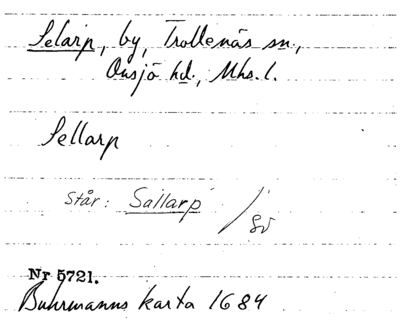 Selarp, by, Trollenäs sn.,
Onsjö hd., Mhs. l.
Sellarp
Står: Sällarp / 
Nr 5721.
Buhrmanns karta 1684